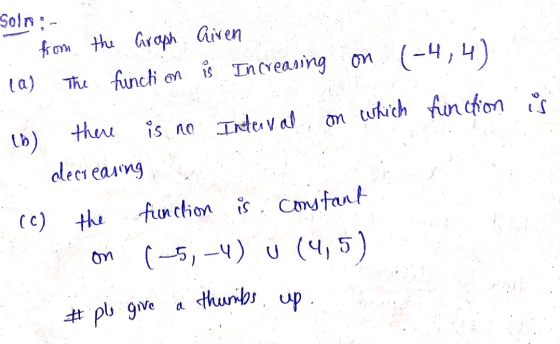 Soln:-
from the Graph Given
(a) The function is Increasing on (-4,4)
(b) there is no Interval on which function is
decreasing.
(c) the function is constant
on (-5,-4) ∪ (4,5)
# pls give a thumbs up.